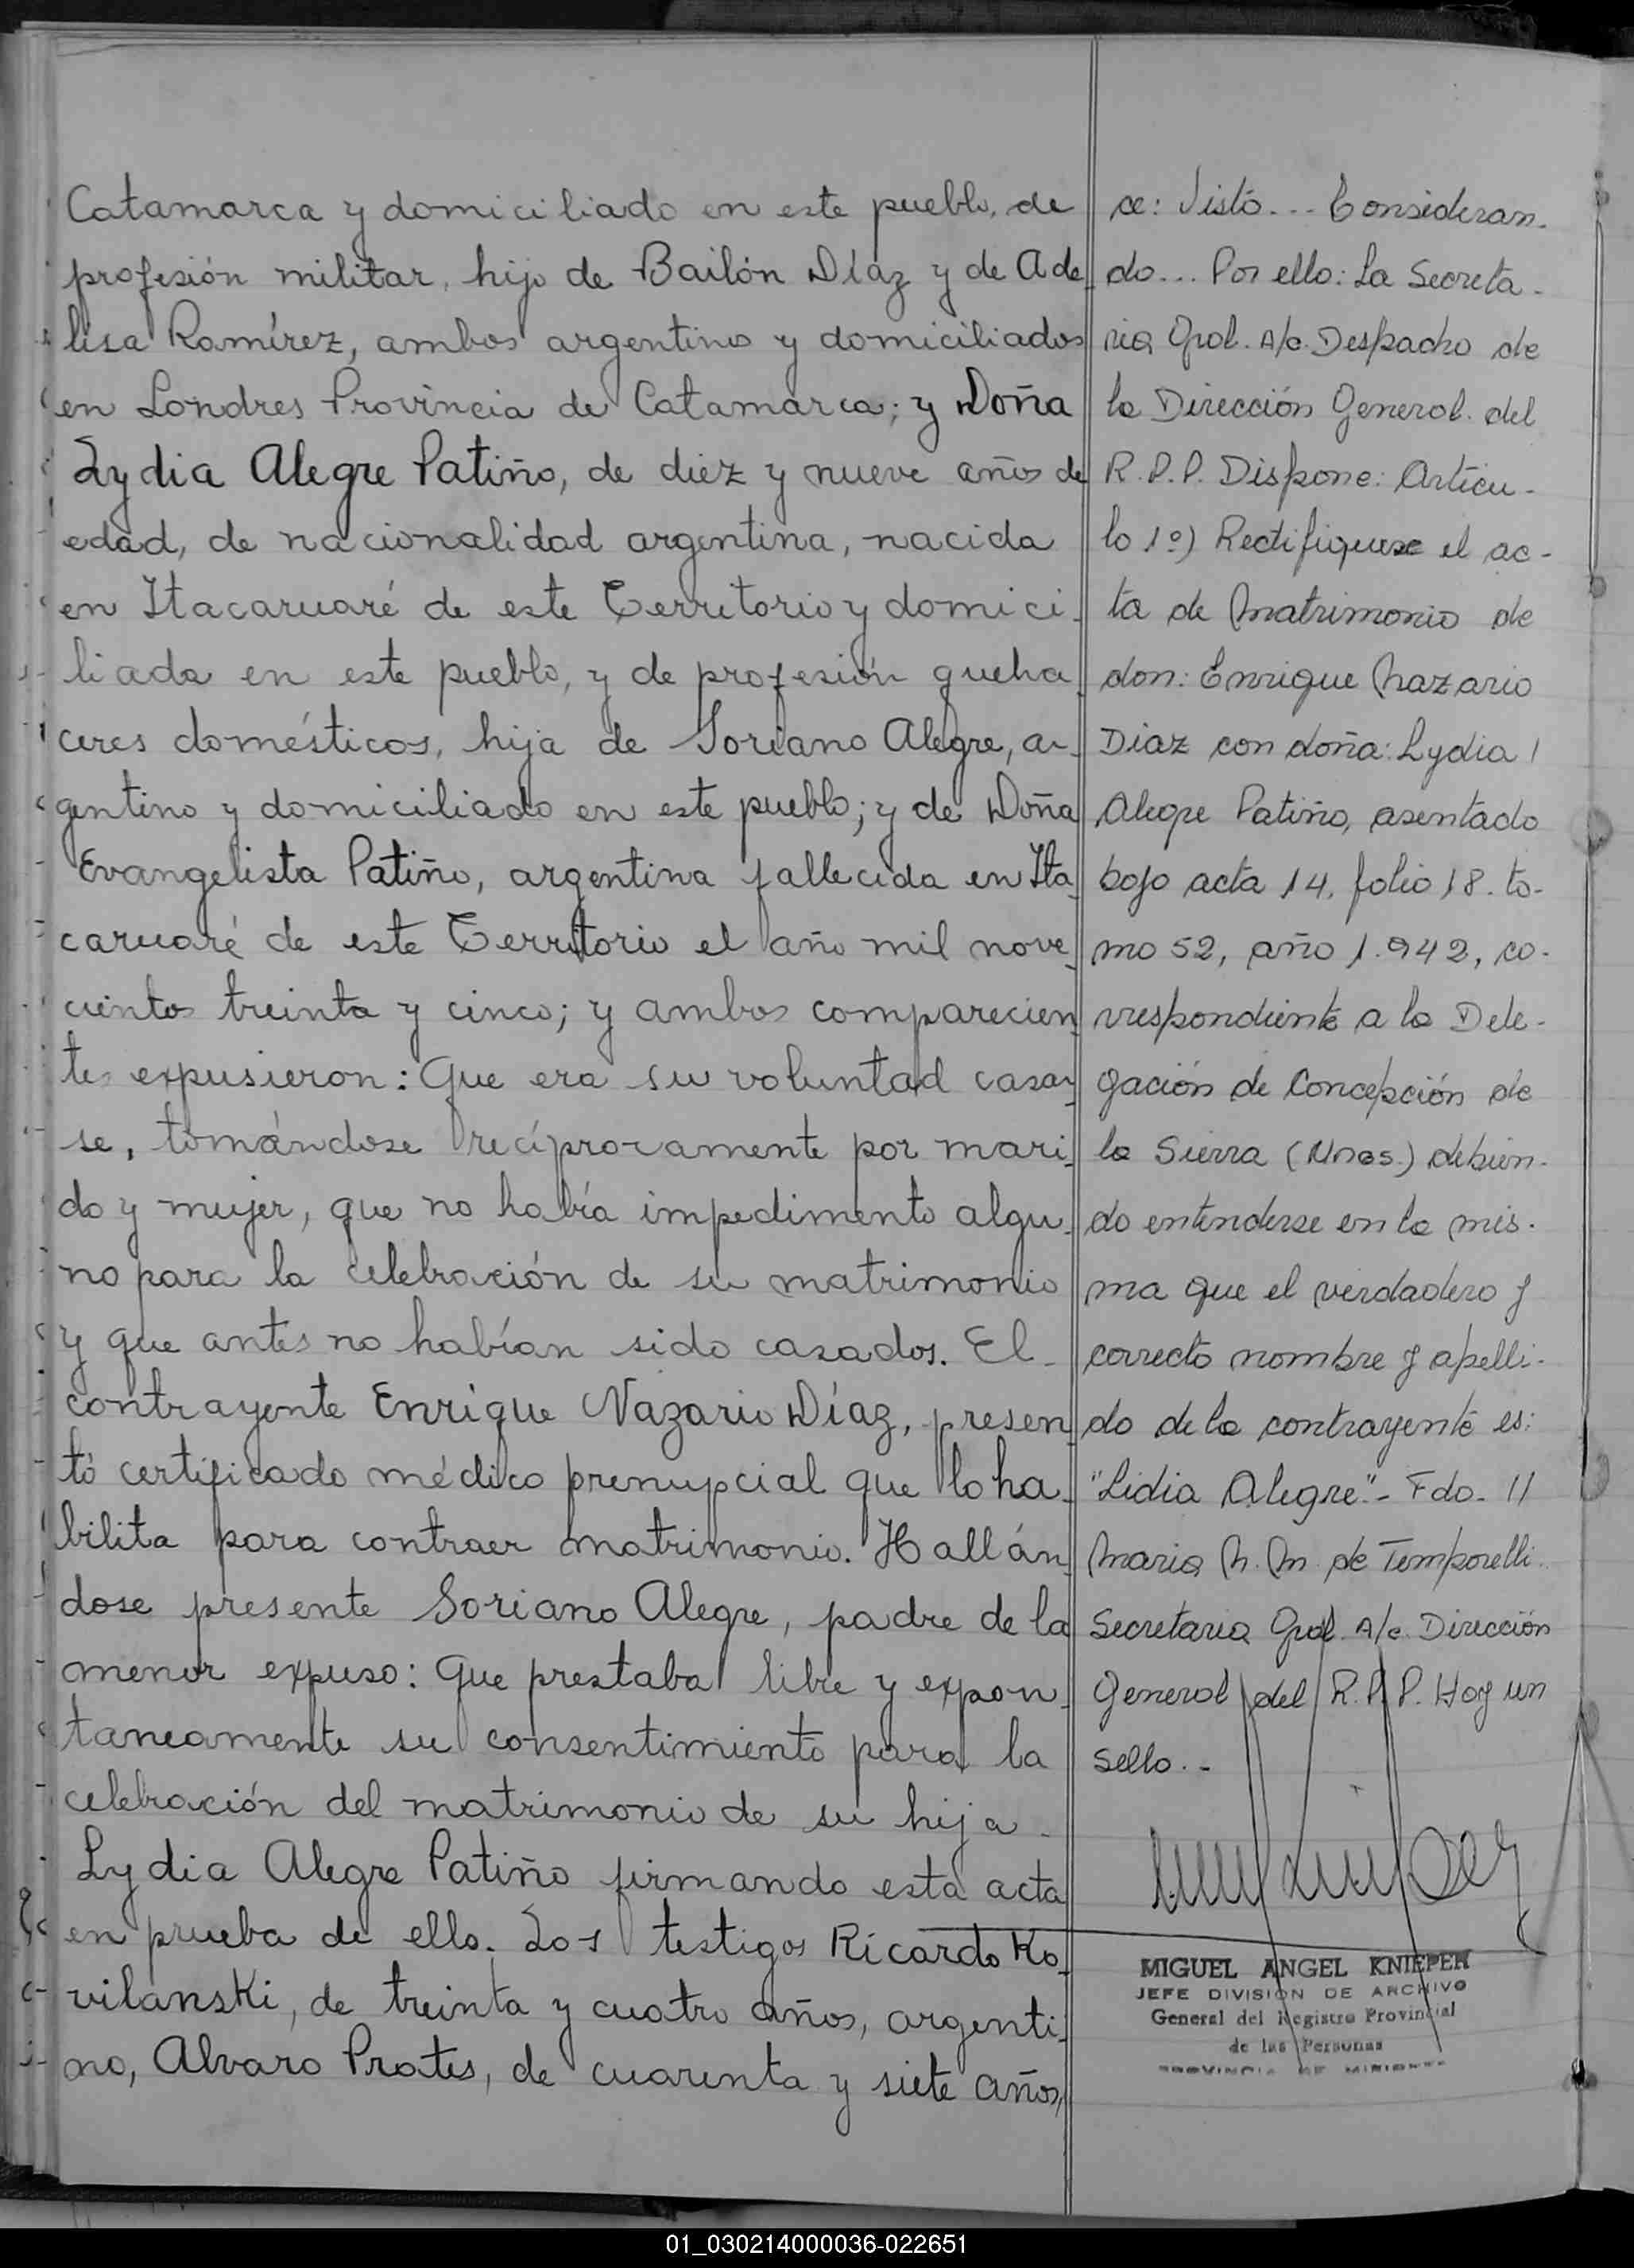 Catamarca y domiciliado en este pueblo, de
profesión militar, hijo de Bailón Díaz y de Ade
lisa Ramírez, ambos argentinos y domiciliados
en Londres Provincia de Catamarca; y Doña
Lydia Alegre Patiño, de diez y nueve años de
edad, de nacionalidad argentina, nacida
en Itacaruaré de este Territorio y domici-
liada en este pueblo, y de profesión queha-
ceres domésticos, hija de Soriano Alegre, ar-
gentino y domiciliado en este pueblo; y de Doña
Evangelista Patiño, argentina fallecida en Ita-
caruaré de este Territorio el año mil nove-
cientos treinta y cinco; y ambos comparecien-
tes expusieron: Que era su voluntad casar-
se, tomándose recíprocamente por mari-
do y mujer, que no había impedimento algu-
no para la celebración de su matrimonio
y que antes no habían sido casados. El-
contrayente Enrique Nazario Díaz, presen-
tó certificado médico prenupcial que lo ha-
bilita para contraer matrimonio. Hallán-
dose presente Soriano Alegre, padre de la
menor expuso: Que prestaba libre y expon-
taneamente su consentimiento para la
celebración del matrimonio de su hija-
Lydia Alegre Patiño firmando esta acta
en prueba de ello. Los testigos Ricardo Ko-
vilanski, de treinta y cuatro años, argenti-
no, Alvaro Prates, de cuarenta y siete años,
ce: Visto... Consideran-
do... Por ello: La Secreta-
ria Gral. A/c. Despacho de
la Dirección General del
R.P.P. Dispone: Artícu-
lo 1º) Rectifiquese el ac-
ta de Matrimonio de
don: Enrique Nazario
Diaz con doña: Lydia /
Alegre Patiño, asentado
bajo acta 14, folio 18. to-
mo 52, año 1.942, co-
rrespondiente a la Dele-
gación de Concepción de
la Sierra (Mnes.) debien-
do entenderse en la mis-
ma que el verdadero y
correcto nombre y apelli-
do de la contrayente es:
"Lidia Alegre".- Fdo. //
Maria N. M. de Temporelli.
Secretaria Gral. A/c. Dirección
General del R.P.P. Hay un
sello.-
MIGUEL ANGEL KNIEPER
JEFE DIVISION DE ARCHIVO
General del Registro Provincial
de las Personas
PROVINCIA DE MISIONES
01_030214000036-022651